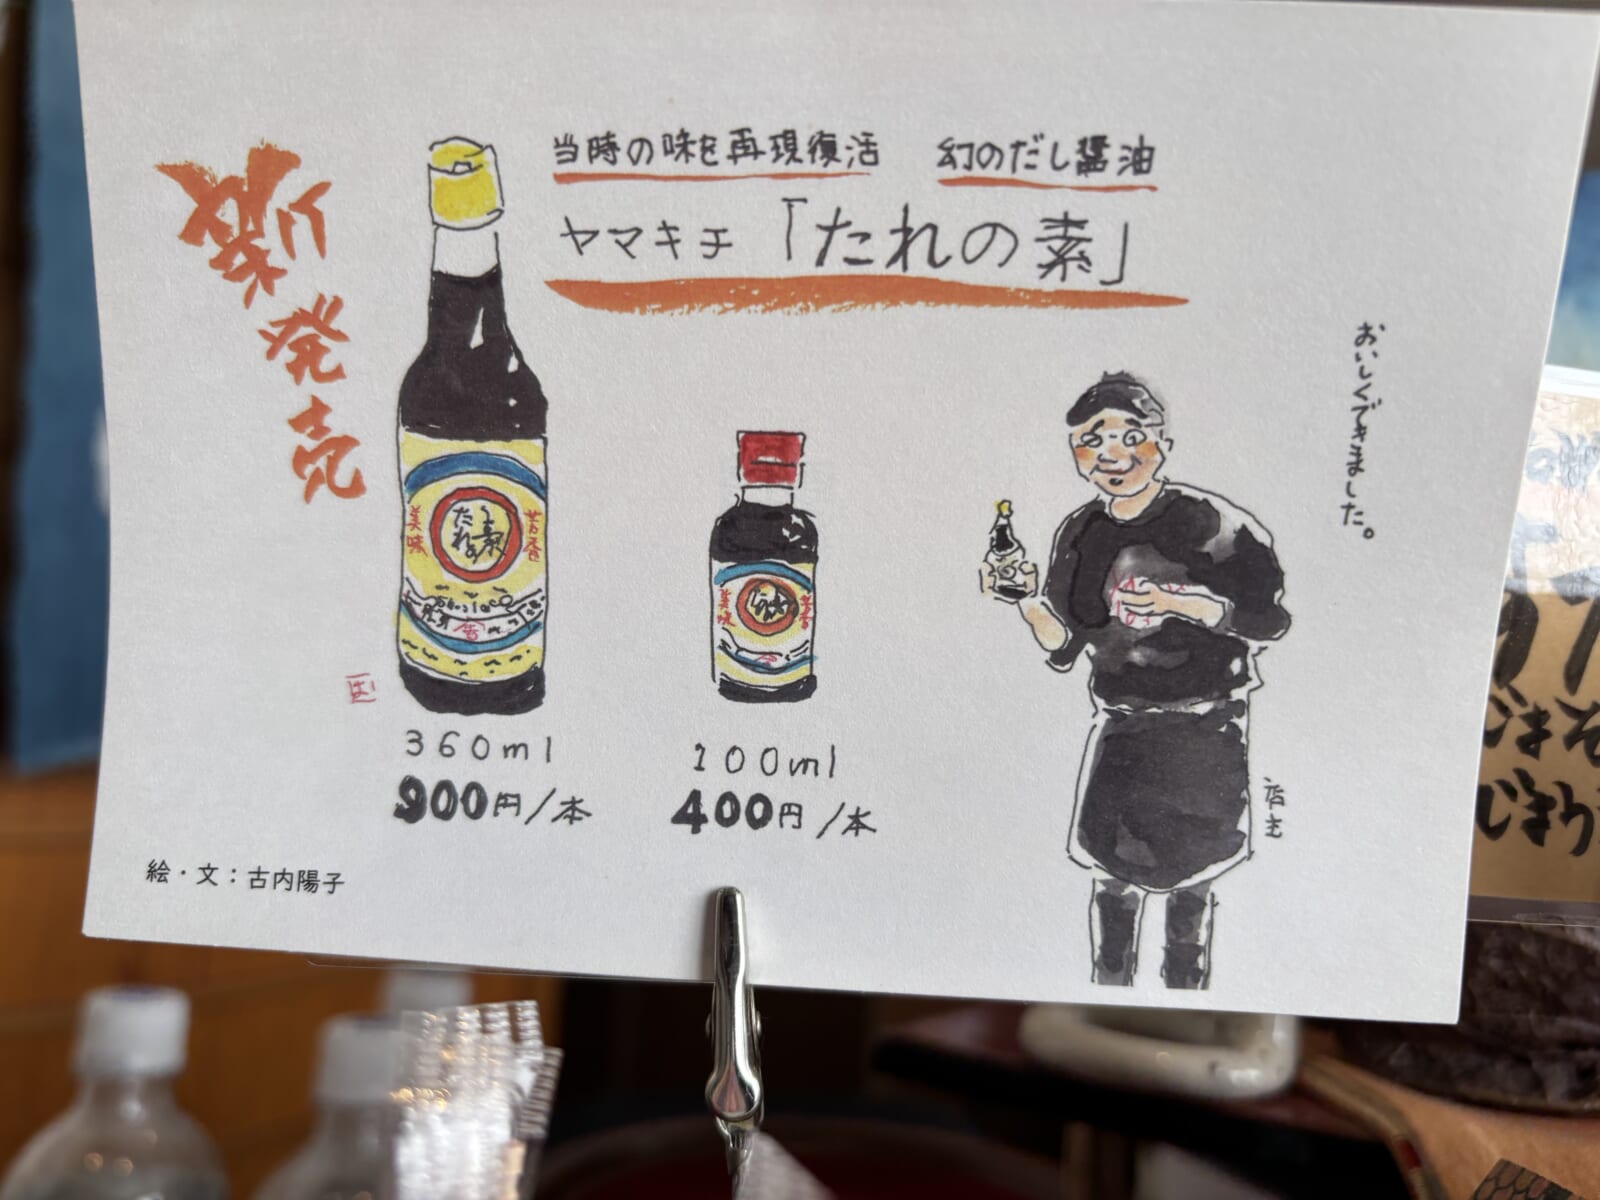 新発売
当時の味を再現復活 幻のだし醤油
ヤマキチ「たれの素」
おいしくできました。
美味
たれの素
芳香
美味
360ml
900円/本
100ml
400円/本
店主
絵・文：古内陽子
ごまそ
じまり